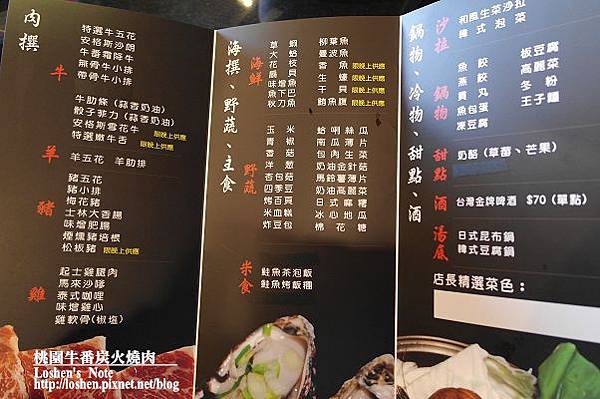 肉撰
牛
特選牛五花
安格斯沙朗
牛番霜降牛
無骨牛小排
帶骨牛小排
牛肋條 (蒜香奶油)
骰子菲力 (蒜香奶油)
安格斯雪花牛 限晚上供應
特選嫩牛舌 限晚上供應
羊
羊五花 羊肋排
豬
豬五花
豬小排
梅花豬
士林大香腸
味增肥腸
煙燻豬培根
松板豬 限晚上供應
雞
起士雞腿肉
馬來沙嗲
泰式咖哩
味增雞心
雞軟骨(椒塩)
海撰、野蔬、主食
海鮮
草蝦
大蛤
花枝
扇貝
味噌魚
魚下巴
秋刀魚
柳葉魚
曼波魚
香魚 限晚上供應
生蠔 限晚上供應
干貝 限晚上供應
虱魚腹 限晚上供應
野蔬
玉米
青椒
香菇
洋蔥
杏包菇
四季豆
烤百頁
米血糕
炸豆包
蛤蜊絲瓜
南瓜薄片
奶油金針菇
馬鈴薯薄片
日式高麗菜
冰心地瓜
米食
鮭魚茶泡飯
鮭魚烤飯糰
鍋物、冷物、甜點、酒
沙拉
和風生菜沙拉
韓式泡菜
鍋物
魚餃
燕餃
貢丸
魚包蛋
凍豆腐
板豆腐
高麗菜
冬粉
王子麵
甜點
奶酪 (草莓、芒果)
酒
台灣金牌啤酒 $70 (單點)
湯底
日式昆布鍋
韓式豆腐鍋
店長精選菜色：
桃園牛番炭火燒肉
Loshen's Note
http://loshen.pixnet.net/blog